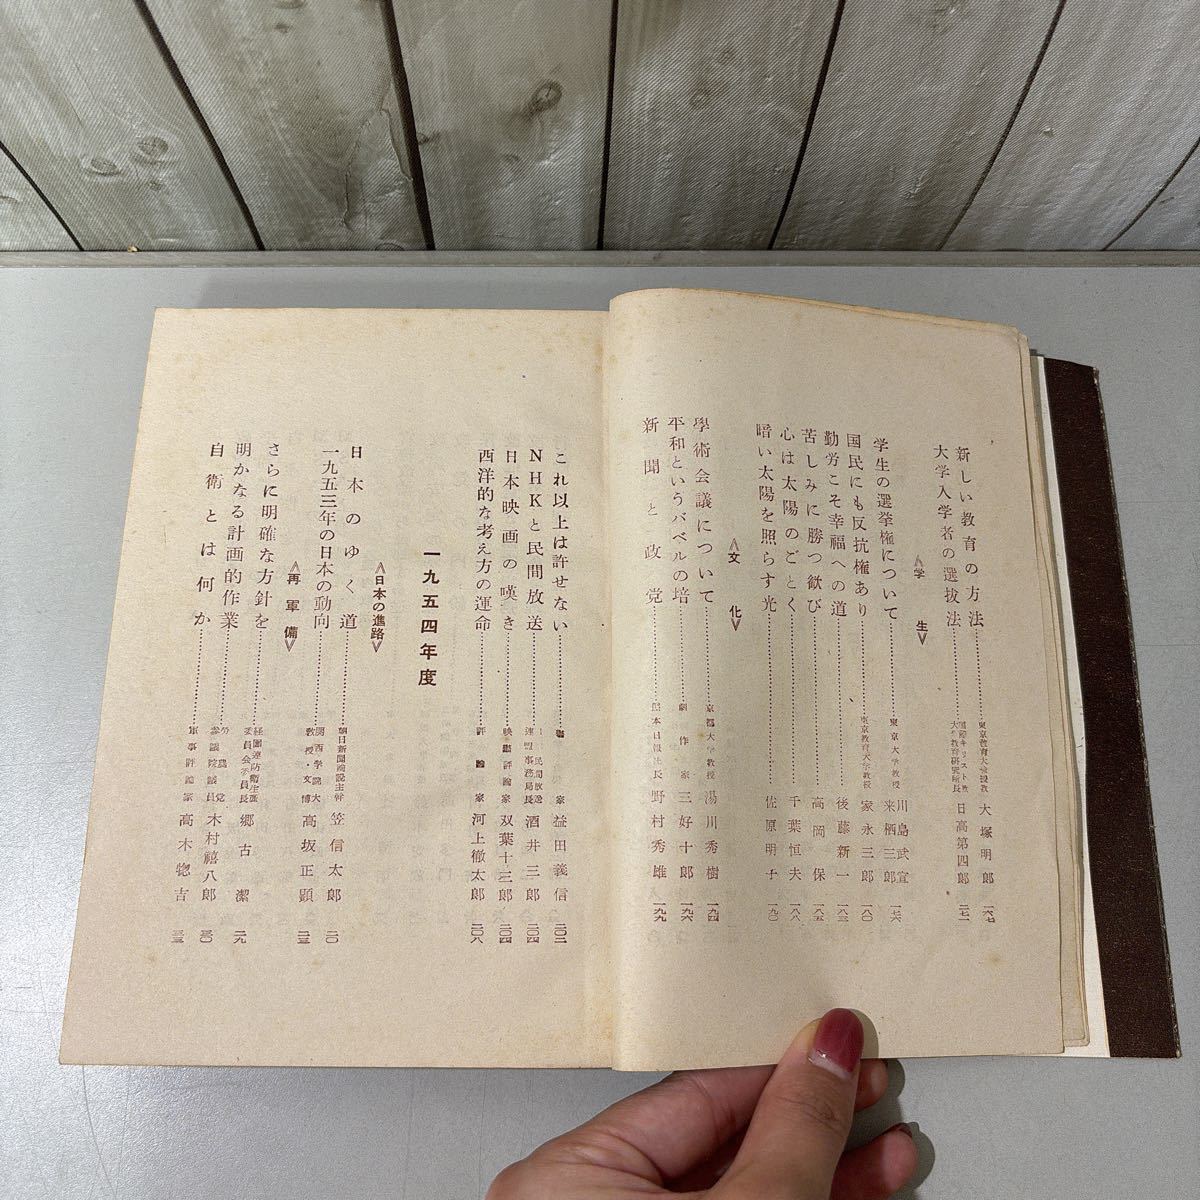 新しい教育の方法………東京教育大学教授 大塚明郎 一六七
大学入学者の選抜法………国際キリスト教大学教育研究所長 日高第四郎 一七一
≪学生≫
学生の選挙権について………東京大学教授 川島武宜 来栖三郎 一七六
国民にも反抗権あり………東京教育大学教授 家永三郎 一八〇
勤労こそ幸福への道………後藤新一 一八三
苦しみに勝つ歓び………高岡保 一八五
心は太陽のごとく………千葉恒夫 一八八
暗い太陽を照らす光………佐原明子 一九〇
≪文化≫
學術会議について………京都大学教授 湯川秀樹 一九四
平和というバベルの塔………劇作家 三好十郎 一九六
新聞と政党………熊本日報社長 野村秀雄 一九九
これ以上は許せない………家 益田義信 二〇二
NHKと民間放送………民間放送連盟事務局長 酒井三郎 二〇四
日本映画の嘆き………映画評論家 双葉十三郎
西洋的な考え方の運命………評論家 河上徹太郎 二〇八
一九五四年度
≪日本の進路≫
日本のゆく道………朝日新聞論説主幹 笠信太郎 二〇
一九五三年の日本の動向………関西学院大教授・文博 高坂正顕 二三
≪再軍備≫
さらに明確な方針を………経団連防衛生産委員会委員長 郷古潔 二九
明かなる計画的作業………労農党参議院議員 木村禧八郎 三〇
自衛とは何か………軍事評論家 高木惣吉 三三